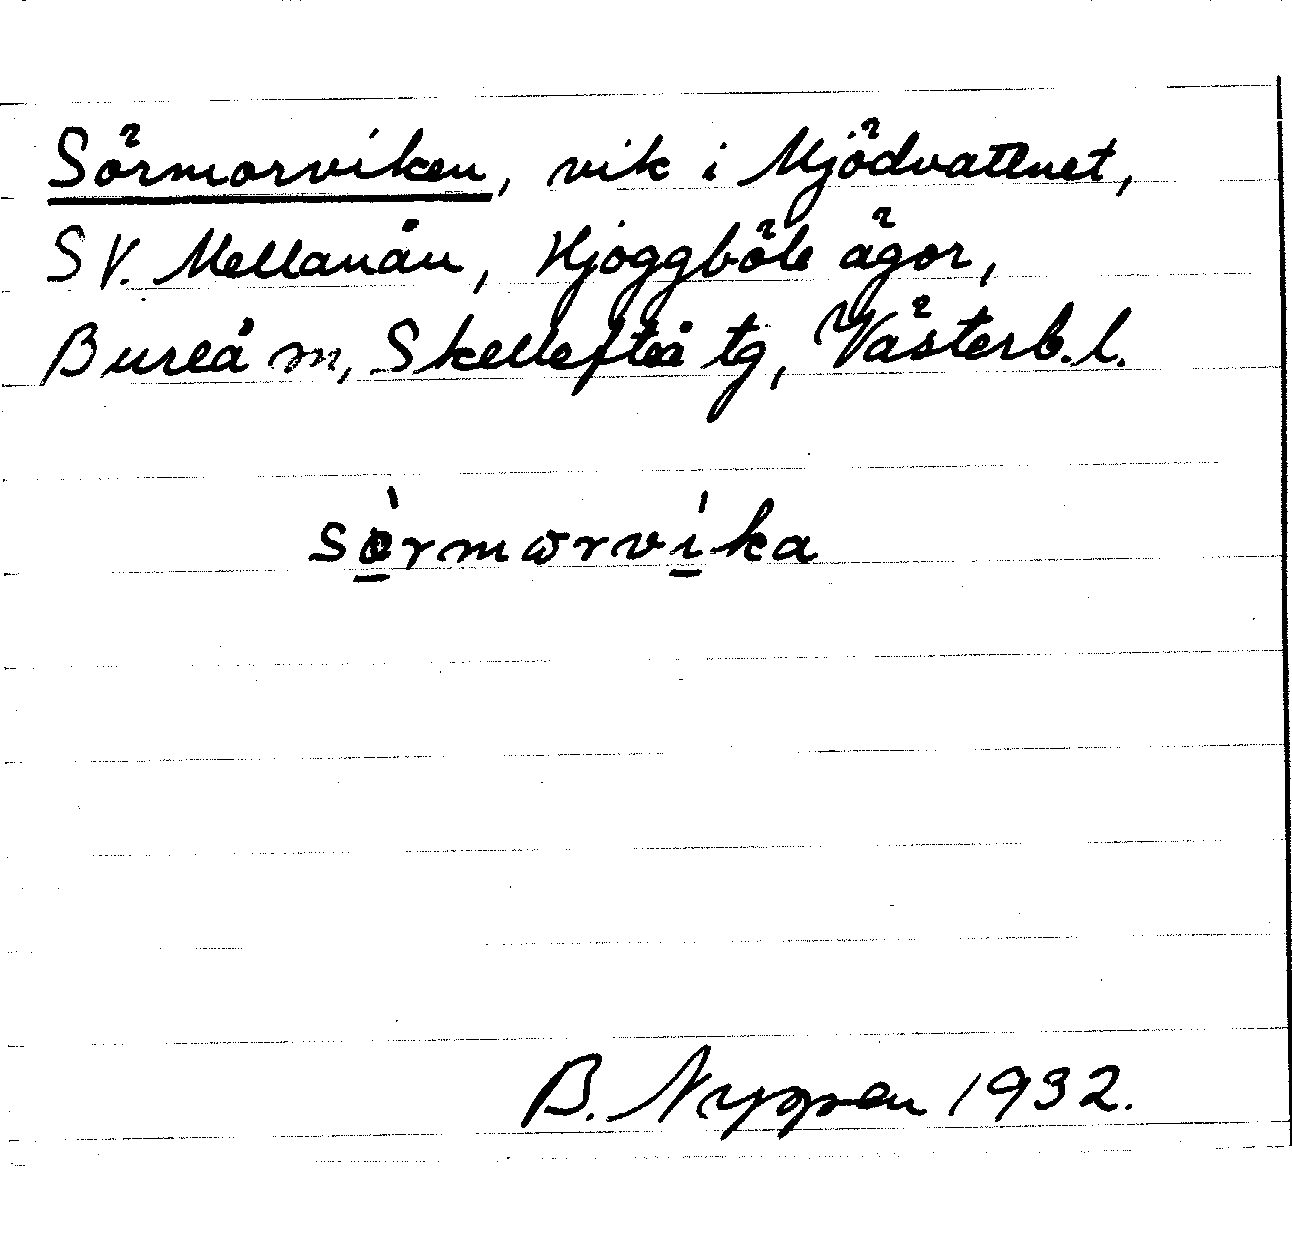 Sörmorviken, vik i Mjödvattnet,
SV. Mellanån, Hjoggböle ägor,
Bureå m, Skellefteå tg, Västerb. l.
sòrmorvíka
B. Nyppen 1932.